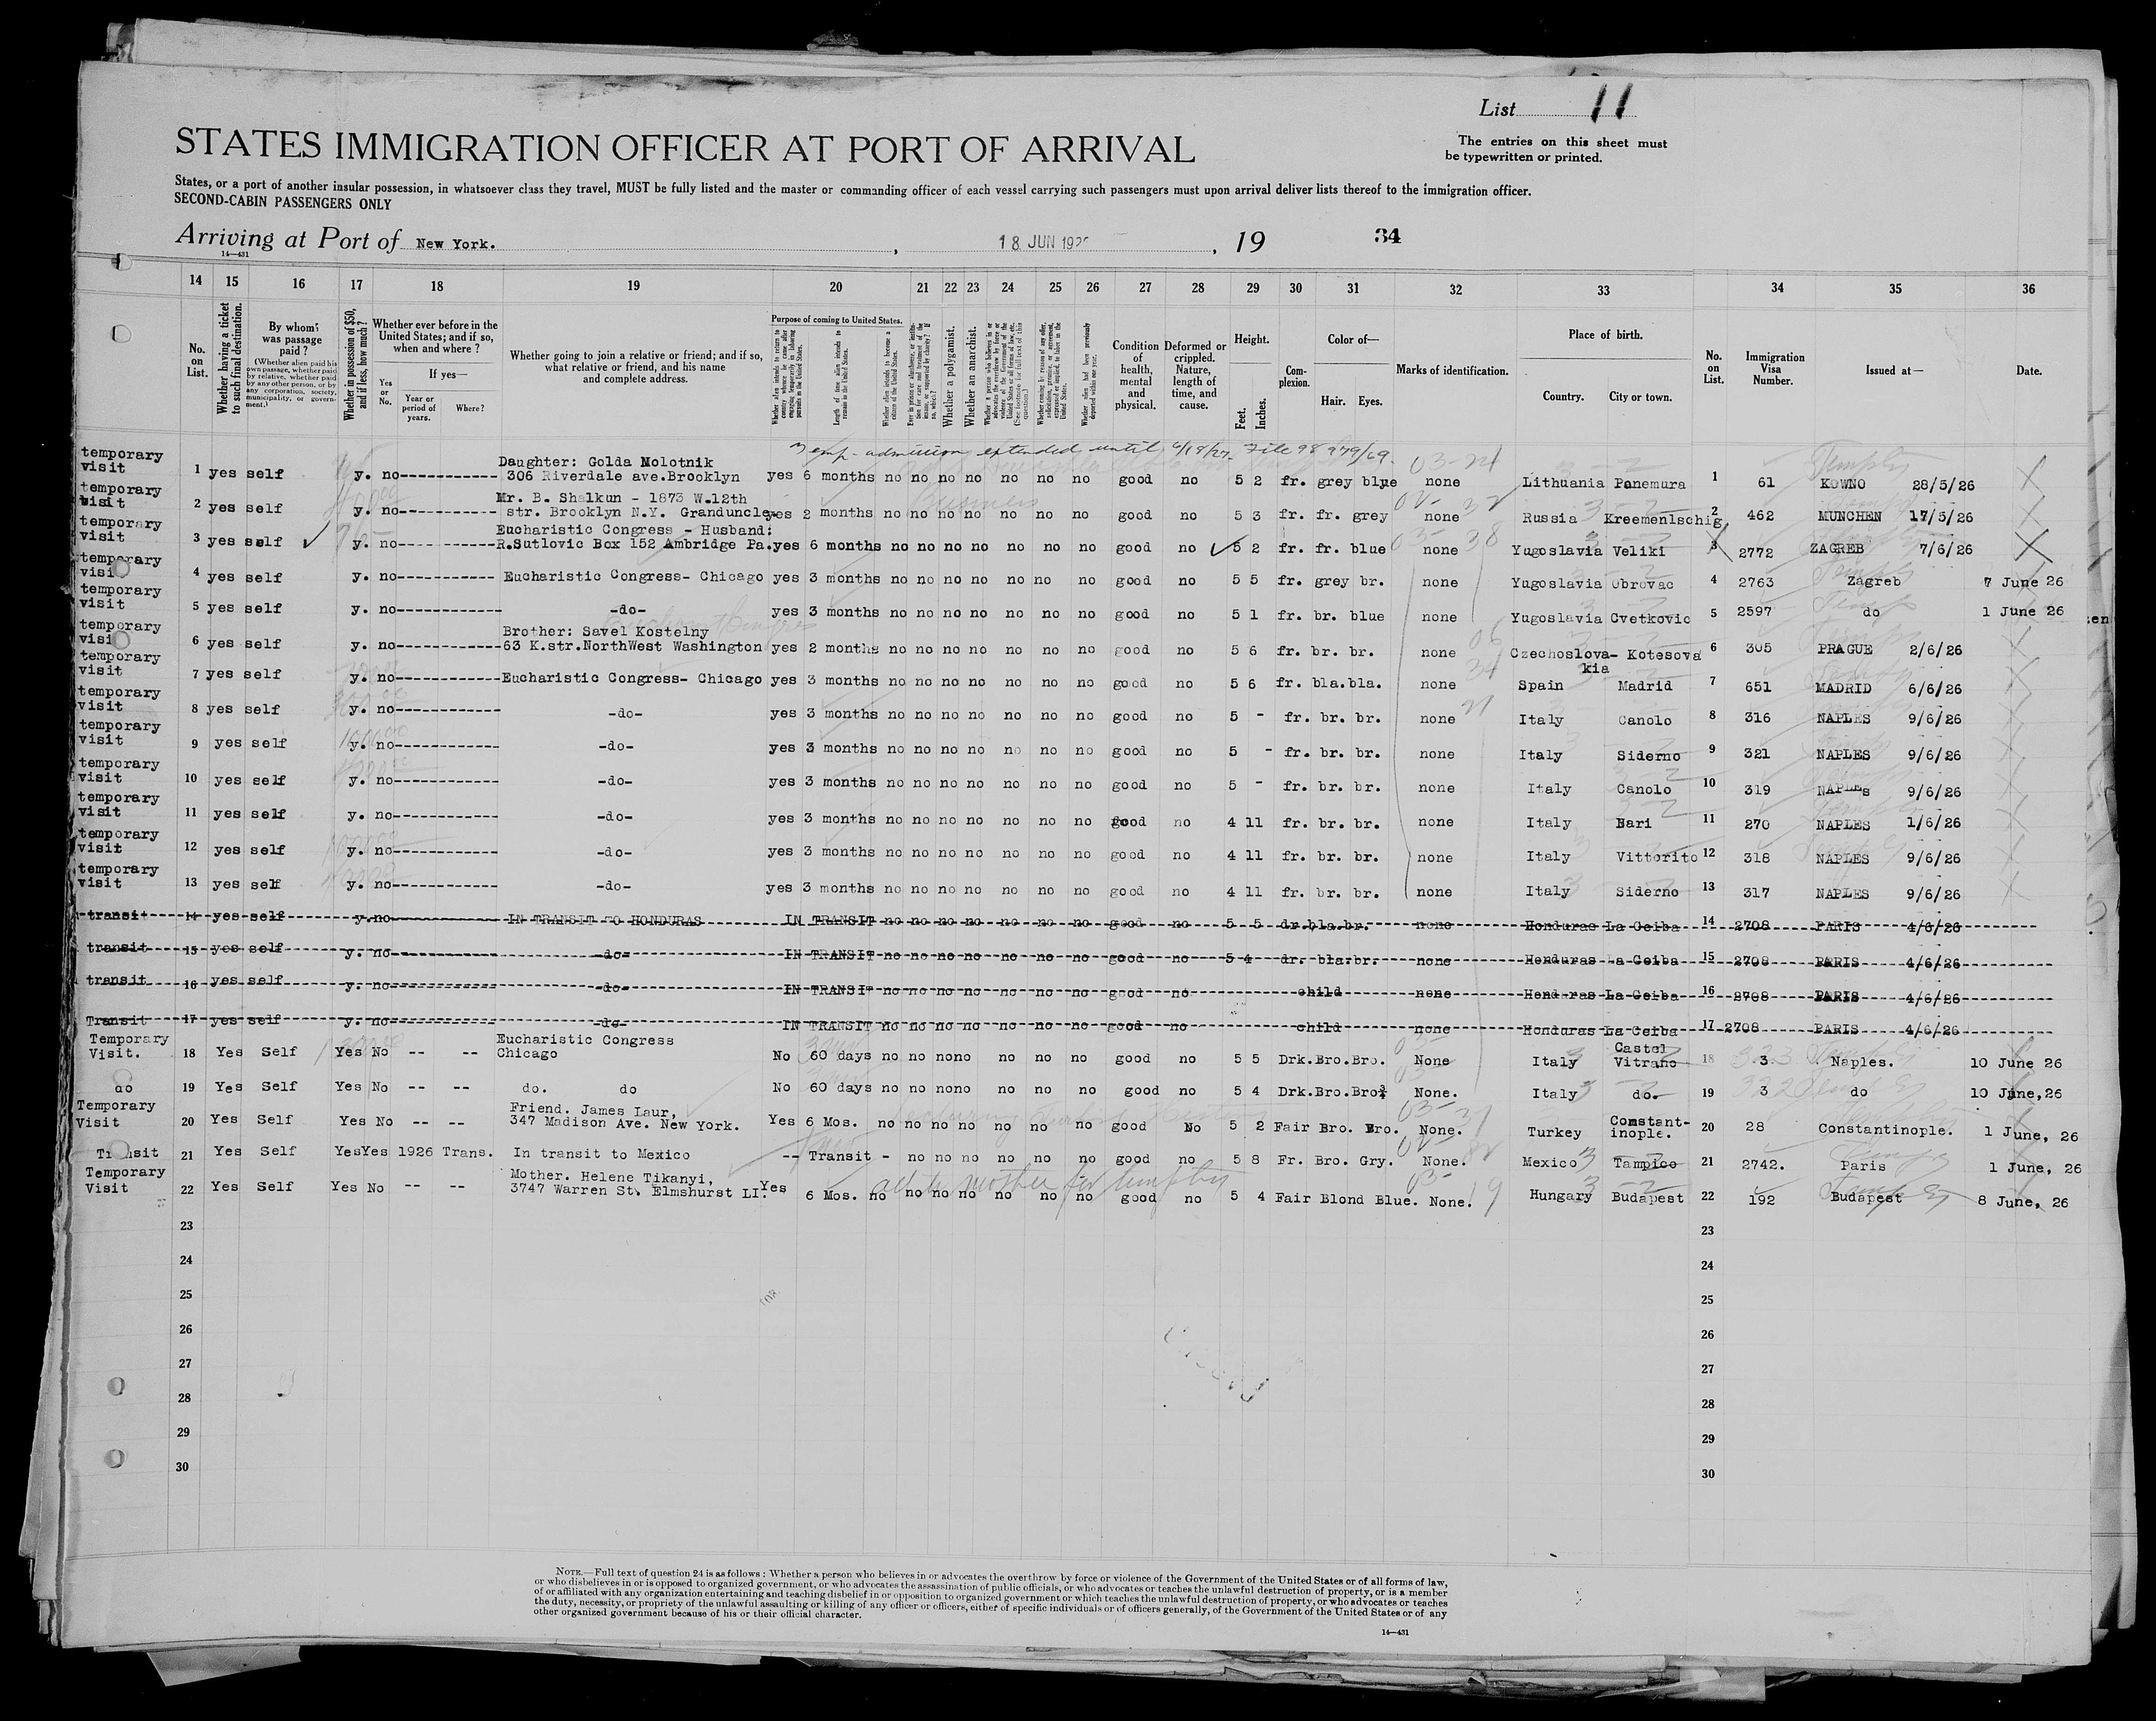 List 11
The entries on this sheet must
be typewritten or printed.
STATES IMMIGRATION OFFICER AT PORT OF ARRIVAL
States, or a port of another insular possession, in whatsoever class they travel, MUST be fully listed and the master or commanding officer of each vessel carrying such passengers must upon arrival deliver lists thereof to the immigration officer.
SECOND-CABIN PASSENGERS ONLY
Arriving at Port of New York. , 18 JUN 192 , 19 34
14—431
14 15 16 17 18 19 20 21 22 23 24 25 26 27 28 29 30 31 32 33 34 35 36
No. on List.
Whether having a ticket to such final destination.
By whom was passage paid?
(Whether alien paid his own passage, whether paid by relative, whether paid by any other person, or by any corporation, society, municipality, or government.)
Whether in possession of $50, and if less, how much?
Whether ever before in the United States; and if so, when and where?
Yes or No.
If yes—
Year or period of years.
Where?
Whether going to join a relative or friend; and if so, what relative or friend, and his name and complete address.
Purpose of coming to United States.
Whether alien intends to return to country whence he came after engaging temporarily in laboring pursuits in the United States.
Length of time alien intends to remain in the United States.
Whether alien intends to become a citizen of the United States.
Whether a polygamist.
Whether an anarchist.
Condition of health, mental and physical.
Deformed or crippled. Nature, length of time, and cause.
Height.
Feet. Inches.
Complexion.
Color of—
Hair. Eyes.
Marks of identification.
Place of birth.
Country. City or town.
No. on List.
Immigration Visa Number.
Issued at—
Date.
Temp. admission extended until 6/18/27. File 98979/69.
temporary visit 1 yes self y. no Daughter: Golda Molotnik 306 Riverdale ave.Brooklyn yes 6 months no no no no no no no good no 5 2 fr. grey blue none Lithuania Panemura 1 61 KOWNO 28/5/26
temporary visit 2 yes self y. no Mr. B. Shalkun - 1873 W.12th str. Brooklyn N.Y. Granduncle. yes 2 months no no no no no no no good no 5 3 fr. fr. grey none Russia Kreemenlschig 2 462 MUNCHEN 17/5/26
temporary visit 3 yes self y. no Eucharistic Congress - Husband: R.Sutlovic Box 152 Ambridge Pa. yes 6 months no no no no no no no good no 5 2 fr. fr. blue none Yugoslavia Veliki 3 2772 ZAGREB 7/6/26
temporary visit 4 yes self y. no Eucharistic Congress- Chicago yes 3 months no no no no no no no good no 5 5 fr. grey br. none Yugoslavia Obrovac 4 2763 Zagreb 7 June 26
temporary visit 5 yes self y. no -do- yes 3 months no no no no no no no good no 5 1 fr. br. blue none Yugoslavia Cvetkovic 5 2597 do 1 June 26
temporary visit 6 yes self y. no Brother: Savel Kostelny 63 K.str.NorthWest Washington yes 2 months no no no no no no no good no 5 6 fr. br. br. none Czechoslovakia Kotesova 6 305 PRAGUE 2/6/26
temporary visit 7 yes self y. no Eucharistic Congress- Chicago yes 3 months no no no no no no no good no 5 6 fr. bla.bla. none Spain Madrid 7 651 MADRID 6/6/26
temporary visit 8 yes self y. no -do- yes 3 months no no no no no no no good no 5 - fr. br. br. none Italy Canolo 8 316 NAPLES 9/6/26
temporary visit 9 yes self y. no -do- yes 3 months no no no no no no no good no 5 - fr. br. br. none Italy Siderno 9 321 NAPLES 9/6/26
temporary visit 10 yes self y. no -do- yes 3 months no no no no no no no good no 5 - fr. br. br. none Italy Canolo 10 319 NAPLES 9/6/26
temporary visit 11 yes self y. no -do- yes 3 months no no no no no no no good no 4 11 fr. br. br. none Italy Bari 11 270 NAPLES 1/6/26
temporary visit 12 yes self y. no -do- yes 3 months no no no no no no no good no 4 11 fr. br. br. none Italy Vittorito 12 318 NAPLES 9/6/26
temporary visit 13 yes self y. no -do- yes 3 months no no no no no no no good no 4 11 fr. br. br. none Italy Siderno 13 317 NAPLES 9/6/26
transit 14 yes self y. no IN TRANSIT TO HONDURAS IN TRANSIT no no no no no no no good no 5 5 dr.bla.br. none Honduras La Ceiba 14 2708 PARIS 4/6/26
transit 15 yes self y. no -do- IN TRANSIT no no no no no no no good no 5 4 dr. bla.br. none Honduras La Ceiba 15 2708 PARIS 4/6/26
transit 16 yes self y. no -do- IN TRANSIT no no no no no no no good no child none Honduras La Ceiba 16 2708 PARIS 4/6/26
Transit 17 yes self y. no -do- IN TRANSIT no no no no no no no good no child none Honduras La Ceiba 17 2708 PARIS 4/6/26
Temporary Visit. 18 Yes Self Yes No -- -- Eucharistic Congress Chicago No 60 days no no nono no no no good no 5 5 Drk.Bro.Bro. None Italy Castel Vitrano 18 3 Naples. 10 June 26
do 19 Yes Self Yes No -- -- do. do No 60 days no no nono no no no good no 5 4 Drk.Bro.Bro. None. Italy do. 19 3 do 10 June,26
Temporary Visit 20 Yes Self Yes No -- -- Friend. James Laur, 347 Madison Ave. New York. Yes 6 Mos. no no no no no no no good No 5 2 Fair Bro. Bro. None. Turkey Constantinople. 20 28 Constantinople. 1 June, 26
Transit 21 Yes Self YesYes 1926 Trans. In transit to Mexico -- Transit - no no no no no no good no 5 8 Fr. Bro. Gry. None. Mexico Tampico 21 2742. Paris 1 June, 26
Temporary Visit 22 Yes Self Yes No -- -- Mother. Helene Tikanyi, 3747 Warren St. Elmshurst LI. Yes 6 Mos. no no no no no no no good no 5 4 Fair Blond Blue. None. Hungary Budapest 22 192 Budapest 8 June, 26
23 23
24 24
25 25
26 26
27 27
28 28
29 29
30 30
NOTE.—Full text of question 24 is as follows: Whether a person who believes in or advocates the overthrow by force or violence of the Government of the United States or of all forms of law,
or who disbelieves in or is opposed to organized government, or who advocates the assassination of public officials, or who advocates or teaches the unlawful destruction of property, or is a member
of or affiliated with any organization entertaining and teaching disbelief in or opposition to organized government or which teaches the unlawful destruction of property, or who advocates or teaches
the duty, necessity, or propriety of the unlawful assaulting or killing of any officer or officers, either of specific individuals or of officers generally, of the Government of the United States or of any
other organized government because of his or their official character.
14—431